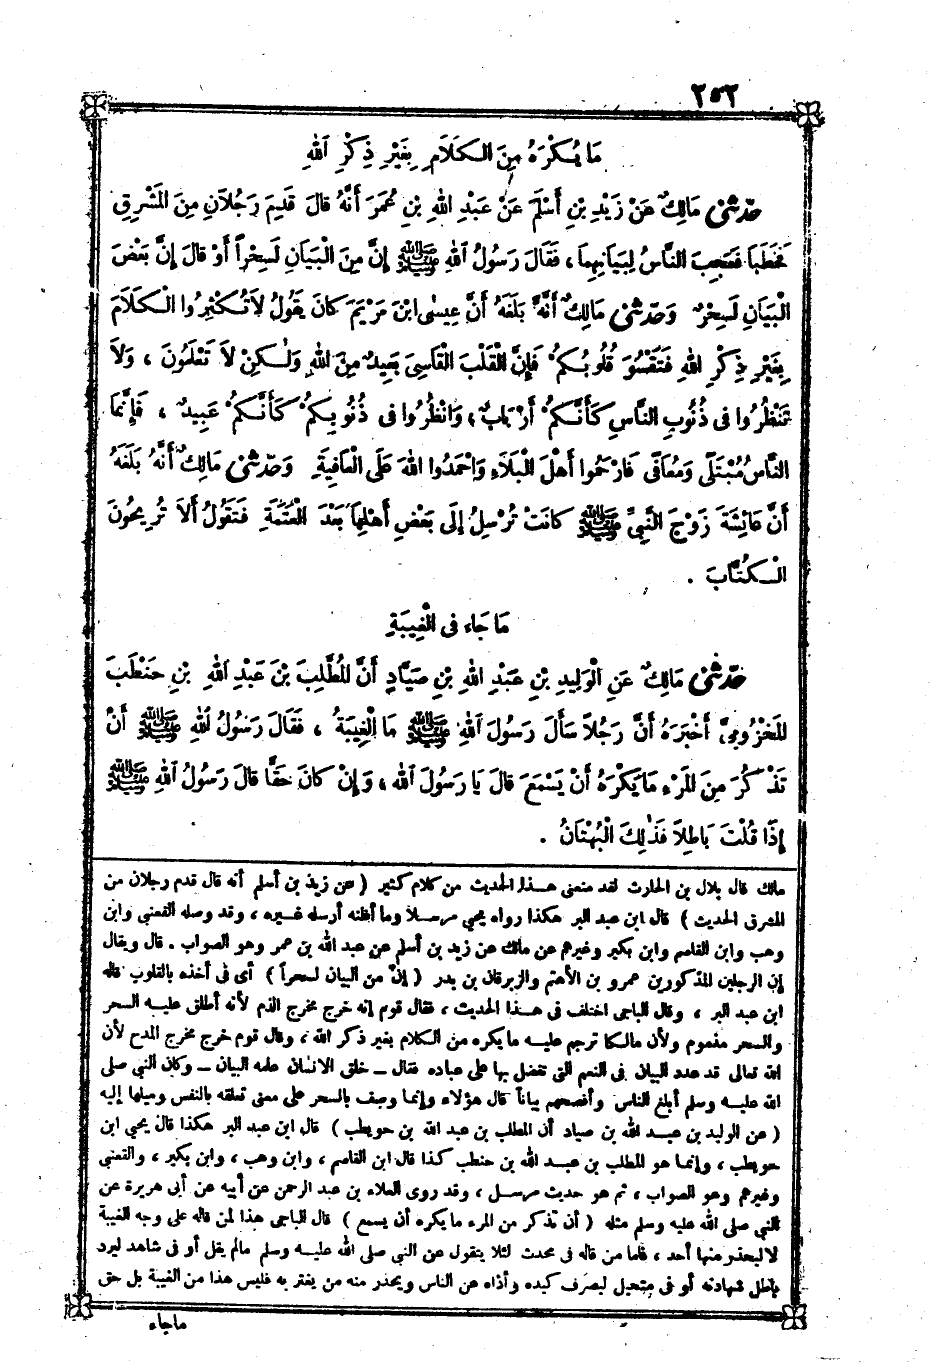 ٢٥٢
مَا يُكْرَهُ مِنَ الْكَلَامِ بِغَيْرِ ذِكْرِ اللهِ
حَدَّثَنِي مَالِكٌ عَنْ زَيْدِ بْنِ أَسْلَمَ عَنْ عَبْدِ اللهِ بْنِ عُمَرَ أَنَّهُ قَالَ قَدِمَ رَجُلَانِ مِنَ الْمَشْرِقِ
فَخَطَبَا فَعَجِبَ النَّاسُ لِبَيَانِهِمَا ، فَقَالَ رَسُولُ اللهِ ﷺ إِنَّ مِنَ الْبَيَانِ لَسِحْراً أَوْ قَالَ إِنَّ بَعْضَ
الْبَيَانِ لَسِحْرٌ وَحَدَّثَنِي مَالِكٌ أَنَّهُ بَلَغَهُ أَنَّ عِيسَى ابْنَ مَرْيَمَ كَانَ يَقُولُ لَا تُكْثِرُوا الْكَلَامَ
بِغَيْرِ ذِكْرِ اللهِ فَتَقْسُوَ قُلُوبُكُمْ فَإِنَّ الْقَلْبَ الْقَاسِيَ بَعِيدٌ مِنَ اللهِ وَلَكِنْ لَا تَعْلَمُونَ ، وَلَا
تَنْظُرُوا فِي ذُنُوبِ النَّاسِ كَأَنَّكُمْ أَرْبَابٌ ، وَانْظُرُوا فِي ذُنُوبِكُمْ كَأَنَّكُمْ عَبِيدٌ ، فَإِنَّمَا
النَّاسُ مُبْتَلًى وَمُعَافًى فَارْحَمُوا أَهْلَ الْبَلَاءِ وَاحْمَدُوا اللهَ عَلَى الْعَافِيَةِ وَحَدَّثَنِي مَالِكٌ أَنَّهُ بَلَغَهُ
أَنَّ عَائِشَةَ زَوْجَ النَّبِيِّ ﷺ كَانَتْ تُرْسِلُ إِلَى بَعْضِ أَهْلِهَا بَعْدَ الْعَتَمَةِ فَتَقُولُ أَلَا تُرِيحُونَ
الْكُتَّابَ .
مَا جَاءَ فِي الْغِيبَةِ
حَدَّثَنِي مَالِكٌ عَنِ الْوَلِيدِ بْنِ عَبْدِ اللهِ بْنِ صَيَّادٍ أَنَّ الْمُطَّلِبَ بْنَ عَبْدِ اللهِ بْنِ حَنْطَبَ
الْمَخْزُومِيَّ أَخْبَرَهُ أَنَّ رَجُلًا سَأَلَ رَسُولَ اللهِ ﷺ مَا الْغِيبَةُ ، فَقَالَ رَسُولُ اللهِ ﷺ أَنْ
تَذْكُرَ مِنَ الْمَرْءِ مَا يَكْرَهُ أَنْ يَسْمَعَ قَالَ يَا رَسُولَ اللهِ ، وَإِنْ كَانَ حَقًّا قَالَ رَسُولُ اللهِ ﷺ
إِذَا قُلْتَ بَاطِلًا فَذَلِكَ الْبُهْتَانُ .
مالك قال بلال بن الحارث لقد منعنى هذا الحديث من كلام كثير ( عن زيد بن أسلم أنه قال قدم رجلان من
المشرق الحديث ) قال ابن عبد البر هكذا رواه يحيى مرسلا وما أظنه أرسله غيره ، وقد وصله القعنبى وابن
وهب وابن القاسم وابن بكير وغيرهم عن مالك عن زيد بن أسلم عن عبد الله بن عمر وهو الصواب . قال ويقال
إن الرجلين المذكورين عمرو بن الأهتم والزبرقان بن بدر ( إن من البيان لسحراً ) أى فى أخذه بالقلوب قاله
ابن عبد البر ، وقال الباجى اختلف فى هذا الحديث ، فقال قوم إنه خرج مخرج الذم لأنه أطلق عليه السحر
والسحر مذموم ولأن مالكا ترجم عليه ما يكره من الكلام بغير ذكر الله ، وقال قوم خرج مخرج المدح لأن
الله تعالى قد عدد البيان فى النعم التى تفضل بها على عباده فقال ــ خلق الانسان علمه البيان ــ وكان النبي صلى
الله عليه وسلم أبلغ الناس وأفصحهم بياناً قال هؤلاء وإنما وصف بالسحر على معنى تعلقه بالنفس وميلها إليه
( عن الوليد بن عبد الله بن صياد أن المطلب بن عبد الله بن حويطب ) قال ابن عبد البر هكذا قال يحيى ابن
حويطب ، وإنما هو المطلب بن عبد الله بن حنطب كذا قال ابن القاسم ، وابن وهب ، وابن بكير ، والقعنبى
وغيرهم وهو الصواب ، ثم هو حديث مرسل ، وقد روى العلاء بن عبد الرحمن عن أبيه عن أبى هريرة عن
النبي صلى الله عليه وسلم مثله ( أن تذكر من المرء ما يكره أن يسمع ) قال الباجى هذا لمن قاله على وجه الغيبة
لا ليحذر منها أحد ، فاما من قاله فى محدث لئلا يتقول عن النبي صلى الله عليه وسلم مالم يقل أو فى شاهد ليرد
باطل شهادته أو فى متحيل ليصرف كيده وأذاه عن الناس ويحذر منه من يغتر به فليس هذا من الغيبة بل حق
ماجاء